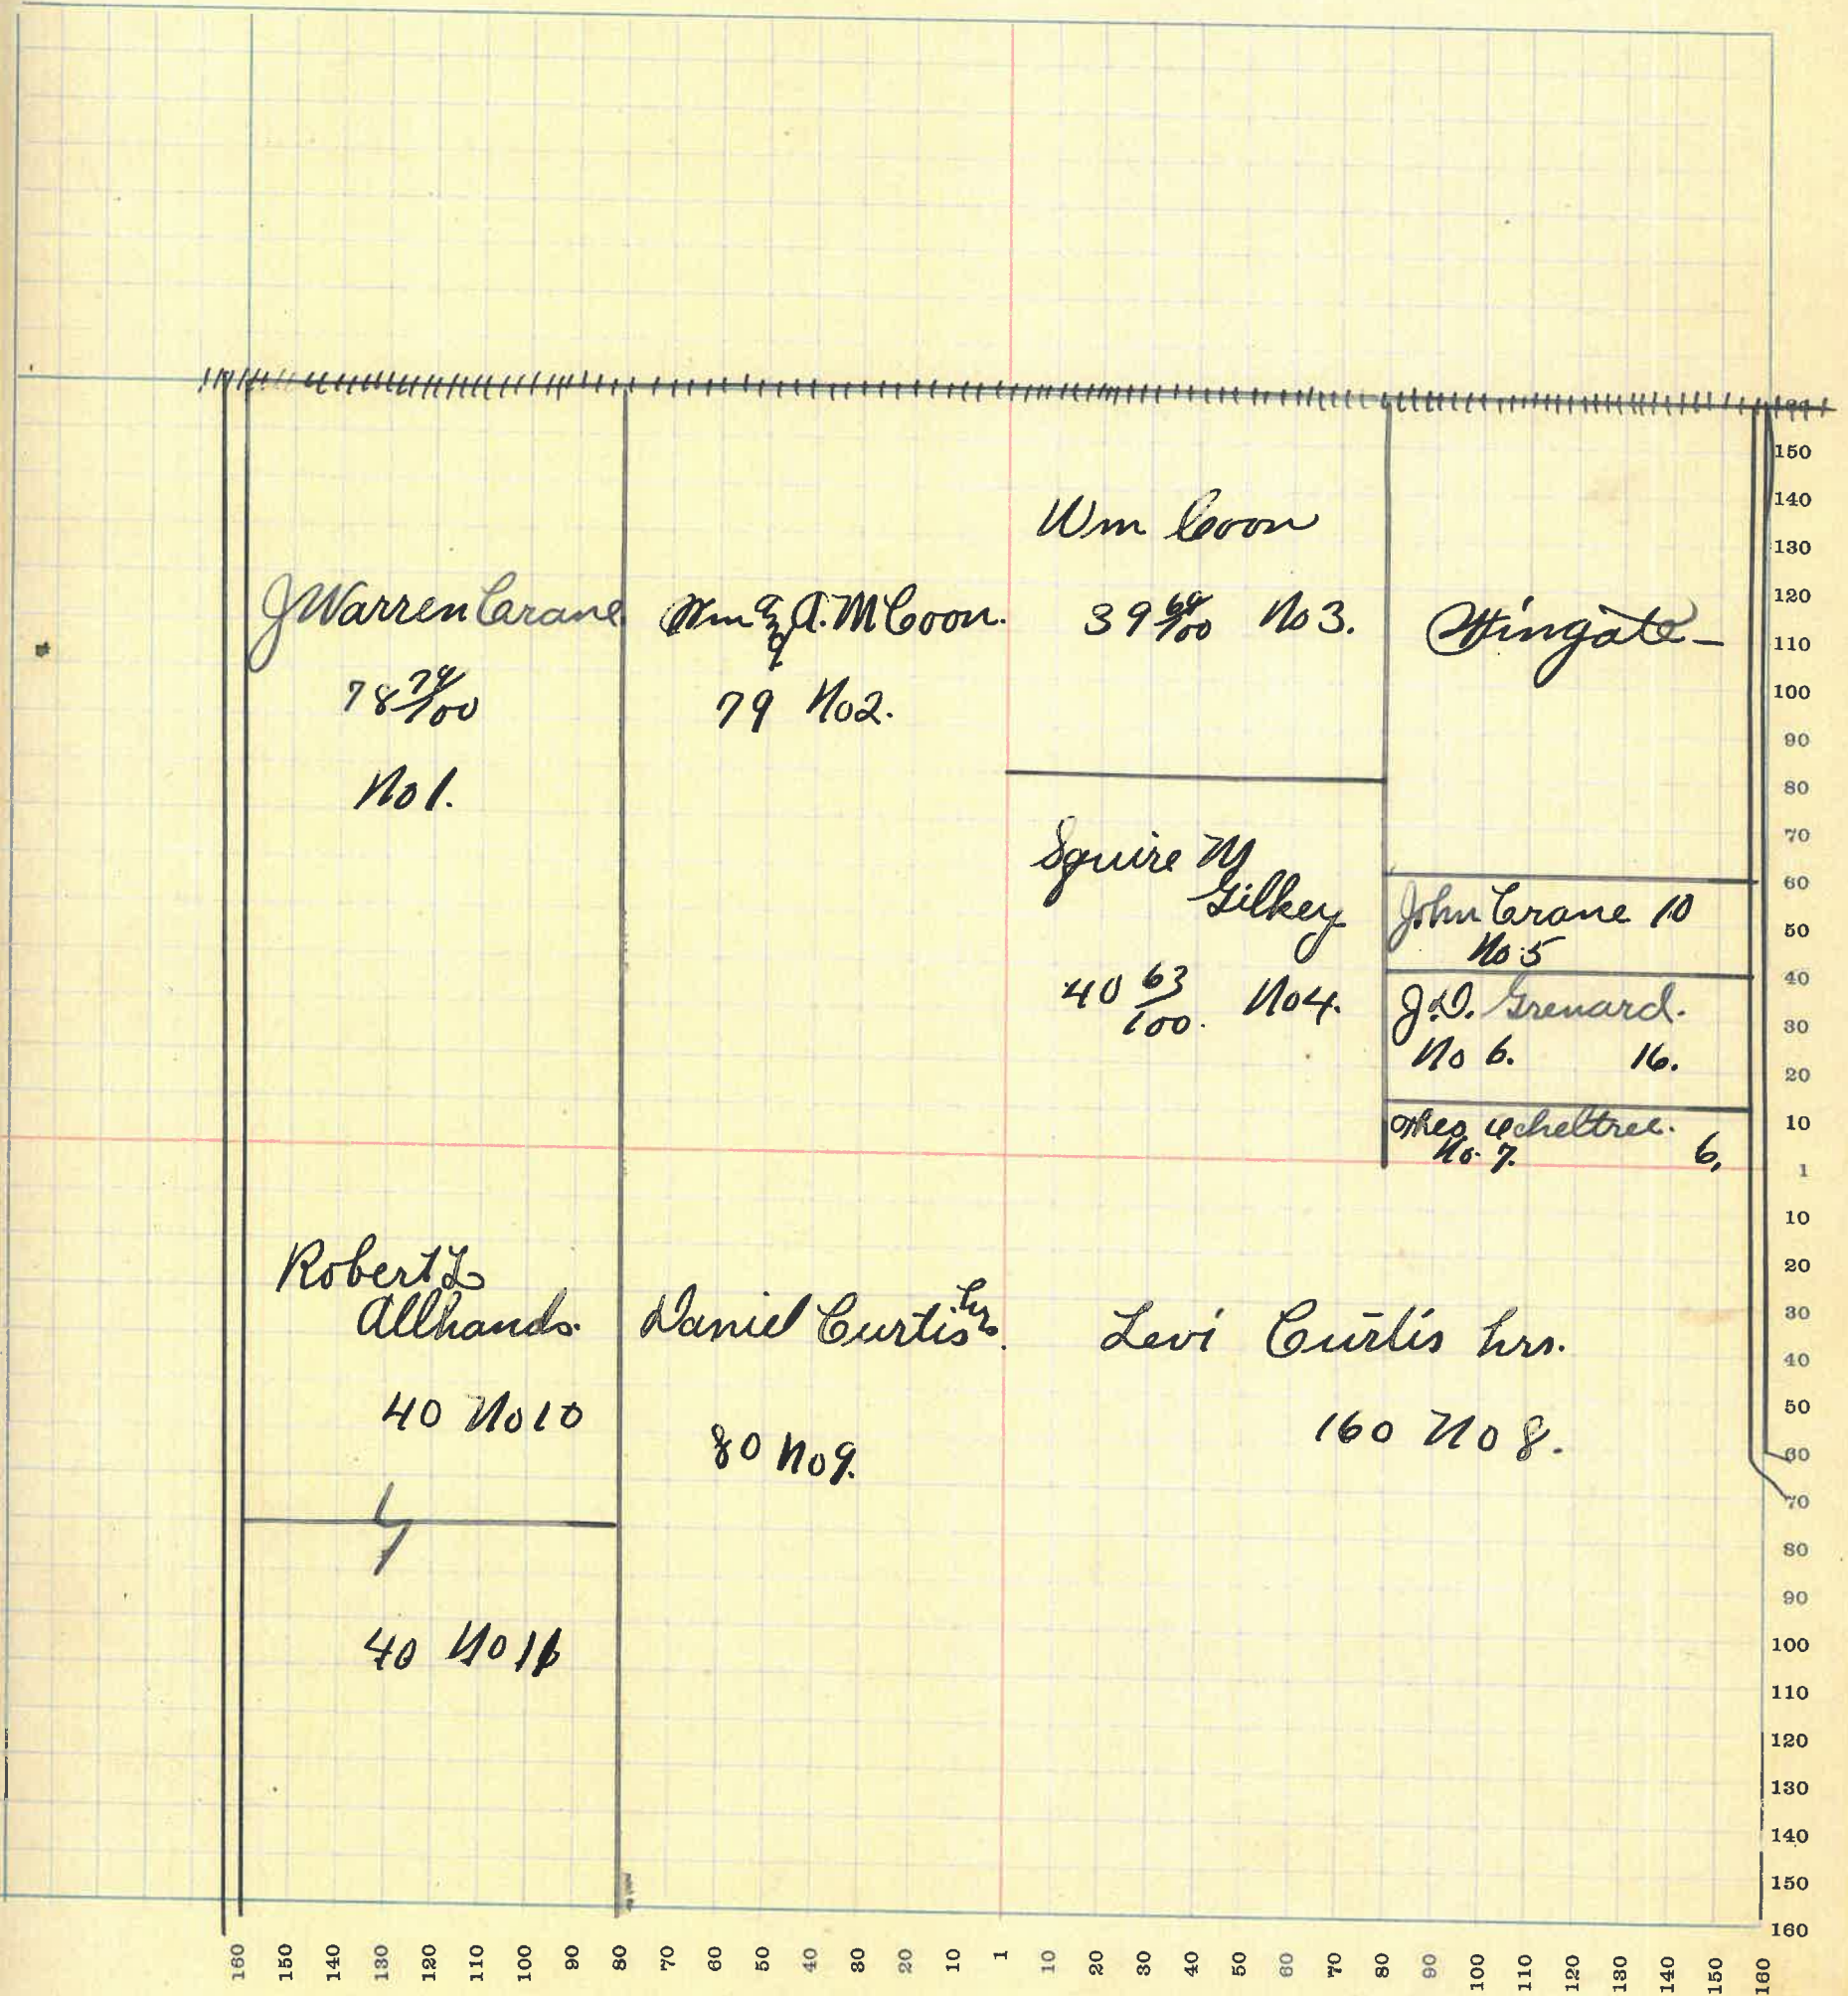 J Warren Crane
78 79/100
No 1.
Wm & A. M Coon.
79 No 2.
Wm Coon
39 /100 No 3.
Wingate
Squire M
Gilkey
40 63/100. No 4.
John Crane 10
No 5
J.D. Grenard.
No 6. 16.
Theo Echeltree.
No. 7. 6,
Robert L
Allhands.
40 No 10
Daniel Curtis hrs.
80 No 9.
Levi Curtis hrs.
160 No 8.
40 No 11
150
140
130
120
110
100
90
80
70
60
50
40
30
20
10
1
10
20
30
40
50
60
70
80
90
100
110
120
130
140
150
160
160 150 140 130 120 110 100 90 80 70 60 50 40 30 20 10 1 10 20 30 40 50 60 70 80 90 100 110 120 130 140 150 160